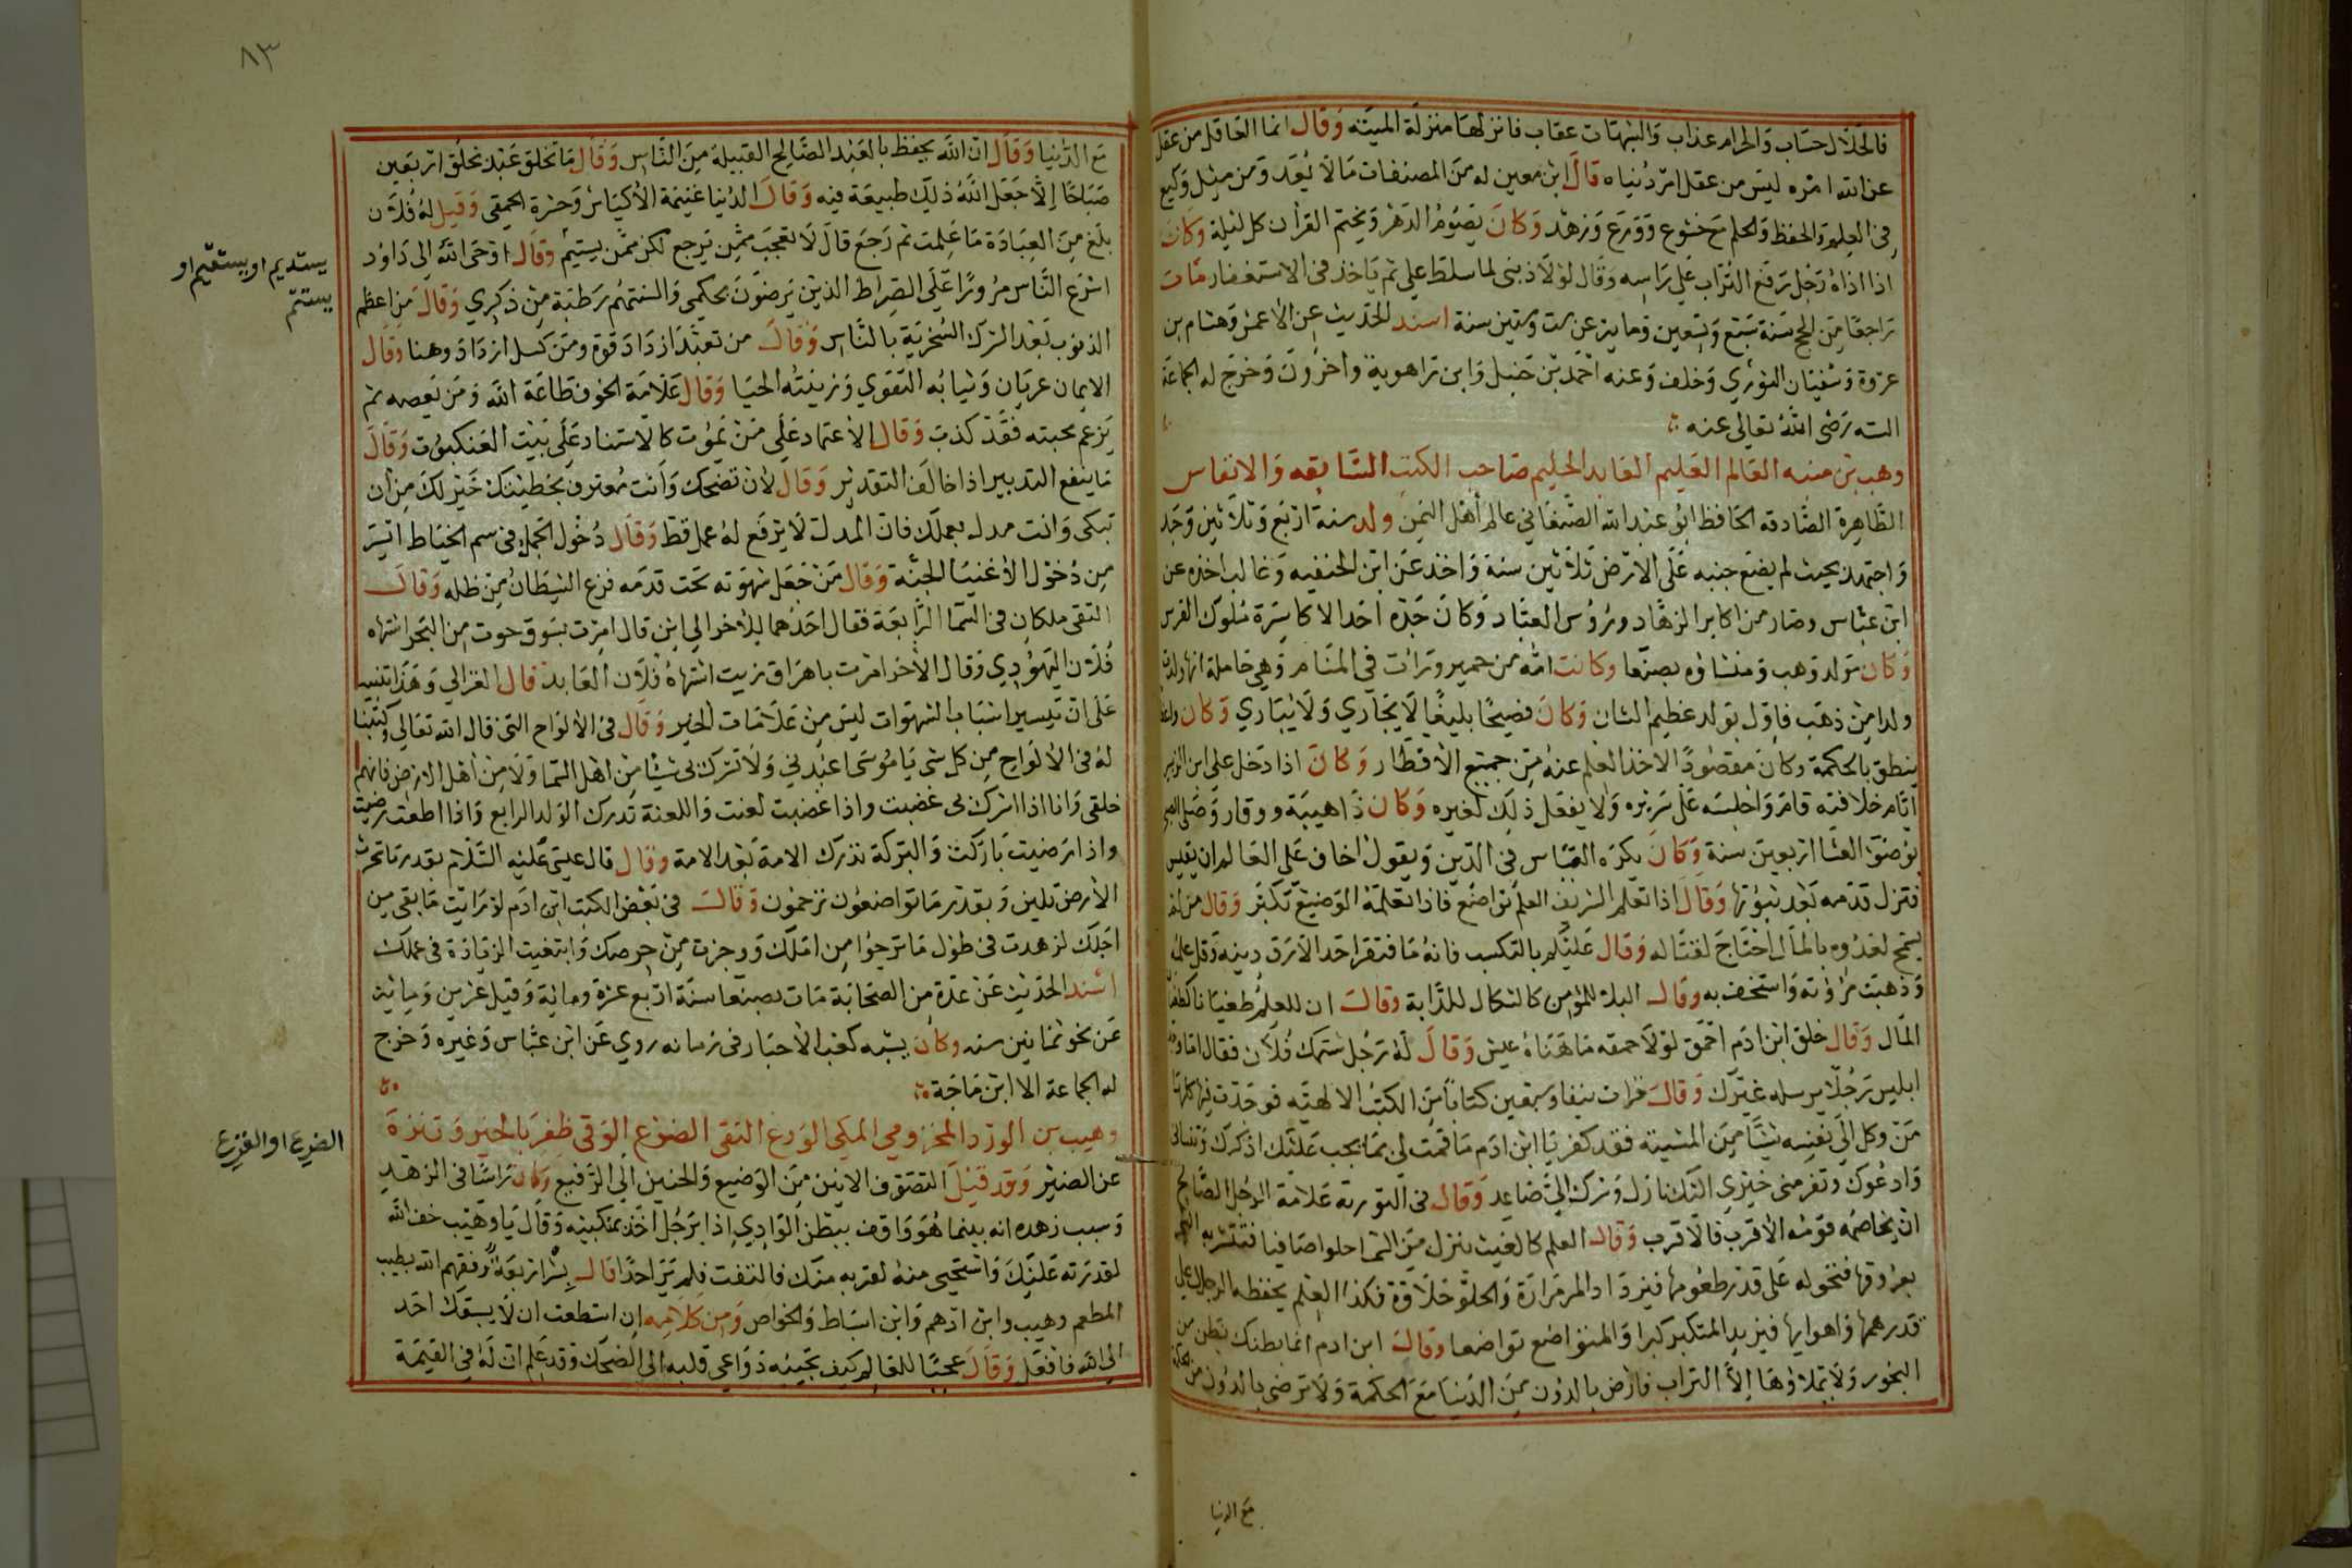 فالحلال حساب والحرام عذاب والشبهات عقاب فانزلها منزلة الميتة وقال انما العاقل من عقل
عن الله امره ليس من عقل امر دنياه قال ابن معين له من المصنفات ما لا يعد ومن مثل وكيع
في العلم والحفظ والحلم مع خشوع وورع وزهد وكان يصوم الدهر ويختم القرآن كل ليلة وكان
اذا اذاه رجل رفع التراب على راسه وقال لولا ذنبي لما سلط علي ثم ياخذ في الاستغفار مات
راجعا من الحج سنة سبع وتسعين وماية عن ست وستين سنة اسند الحديث عن الاعمش وهشام بن
عروة وسفيان الثوري وخلف وعنه احمد بن حنبل وابن راهوية واخرون وخرج له الجماعة
الستة رضي الله تعالى عنه
وهب بن منبه العالم العليم العابد الحليم صاحب الكتب السابقه والانفاس
الظاهرة الصادقه الحافظ ابو عبد الله الصنعاني عالم أهل اليمن ولد سنة اربع وثلاثين وجد
واجتهد بحيث لم يضع جنبه على الارض ثلاثين سنة واخذ عن ابن الحنفيه وغالب اخذه عن
ابن عباس وصار من اكابر الزهاد ورؤس العباد وكان جده احد الاكاسرة ملوك الفرس
وكان مولد وهب ومنشاؤه بصنعا وكانت امه من حمير ورات في المنام وهي حاملة انها ولدت
ولدا من ذهب فاول بولد عظيم الشان وكان فصيحا بليغا لا يجاري ولا يباري وكان واعظا
ينطق بالحكمة وكان مقصودا لاخذ العلم عنه من جميع الاقطار وكان اذا دخل على ابن الزبير
ايام خلافته قام واجلسه على سريره ولا يفعل ذلك لغيره وكان ذا هيبة ووقار وصلى الصبح
بوضوء العشا اربعين سنة وكان يكره القياس في الدين ويقول اخاف على العالم ان يقيس
فتزل قدمه بعد ثبوتها وقال اذا تعلم الشريف العلم تواضع فاذا تعلمه الوضيع تكبر وقال من لم
يسمح لعدوه بالمال احتاج لقتاله وقال عليكم بالتكسب فانه ما افتقر احد الا رق دينه وقل عقله
وذهبت مراوته واستخف به وقال البلا للمؤمن كالشكال للدابة وقال ان للعلم طغيانا كطغيان
المال وقال خلق ابن ادم احمق لولا حمقه ما هناه عيش وقال له رجل شتمك فلان فقال اما وجد
ابليس رجلا يرسله غيرك وقال قرات نيفا وسبعين كتابا من الكتب الالهية فوجدت فيها كلها
من وكل الى نفسه شيا من المشيئة فقد كفر يا ابن ادم ما قمت لي بما يجب عليك اذكرك وتنساني
وادعوك وتفر مني خيري اليك نازل وشرك الي صاعد وقال في التورية علامة الرجل الصالح
ان يخاصمه قومه الاقرب فالاقرب وقال العلم كالغيث ينزل من السما حلوا صافيا فتشربه الشجر
بعروقها فتحوله على قدر طعومها فيزداد المر مرارة والحلو حلاوة فكذا العلم يحفظه الرجل على
قدر هممها واهوايها فيزيد المتكبر كبرا والمتواضع تواضعا وقال ابن ادم انما بطنك بطن من
البحور ولا يملاوها الا التراب فارض بالدون من الدنيا مع الحكمة ولا ترضى بالدون من الحكمة
مع الدنيا
٨٣
مع الدنيا وقال ان الله يحفظ بالعبد الصالح القبيلة من الناس وقال ما تخلق عبد بخلق اربعين
صباحا إلا جعل الله ذلك طبيعة فيه وقال الدنيا غنيمة الاكياس وحسرة الحمقى وقيل له فلان
بلغ من العبادة ما علمت ثم رجع قال لا تعجب ممن يرجع لكن ممن يستيم وقال اوحى الله الى داود
اسرع الناس مرورا على الصراط الذين يرضون بحكمي والسنتهم رطبة من ذكري وقال من اعظم
الذنوب بعد الشرك السخرية بالناس وقال من تعبد ازداد قوة ومن كسل ازداد وهنا وقال
الايمان عريان وثيابه التقوي وزينته الحيا وقال علامة الخوف طاعة الله ومن يعصه ثم
يزعم محبته فقد كذب وقال الاعتماد على من يموت كالاستناد على بيت العنكبوت وقال
ما ينفع التدبير اذا خالف التقدير وقال لان تضحك وانت معترف بخطيئتك خير لك من أن
تبكي وانت مدل بعملك فان المدل لا يرفع له عمل قط وقال دخول الجمل في سم الخياط ايسر
من دخول الاغنيا الجنة وقال من جعل شهوته تحت قدمه فزع الشيطان من ظله وقال
التقى ملكان في السما الرابعة فقال احدهما للاخر الي اين قال امرت بسوق حوت من البحر اشتهاه
فلان اليهودي وقال الاخر امرت باهراق زيت اشتهاه فلان العابد قال الغزالي وهذا تنبيه
على ان تيسير اسباب الشهوات ليس من علامات الخير وقال في الالواح التي قال الله تعالى وكتبنا
له في الالواح من كل شي يا موسى اعبدني ولا تشرك بي شيئا من اهل السما ولا من اهل الارض فانهم
خلقي وانا اذا اشرك بي غضبت واذا غضبت لعنت واللعنة تدرك الولد الرابع واذا اطعت رضيت
واذا رضيت باركت والبركة تدرك الامة بعد الامة وقال قال عيسى عليه السلام بقدر ما تحرث
الارض تلين وبقدر ما تواضعون ترحمون وقال في بعض الكتب ابن ادم لو رايت ما بقي من
اجلك لزهدت في طول ما ترجوا من املك ووجزت من حرصك وابتغيت الزيادة في عملك
اسند الحديث عن عدة من الصحابة مات بصنعا سنة اربع عشرة وماية وقيل عشرين وماية
عن نحو ثمانين سنه وكان يشبه كعب الاحبار في زمانه روي عن ابن عباس وغيره وخرج
له الجماعة الا ابن ماجة
وهيب بن الورد المخزومي المكي الورع التقي الضوع الوقي ظفر بالخير وتنزه
عن الضير وقد قيل التصوف الانين من الوضيع والحنين الى الرفيع وكان راسا في الزهد
وسبب زهده انه بينما هو واقف ببطن الوادي اذا برجل اخذ بمنكبيه وقال يا وهيب خف الله
لقدرته عليك واستحيى منه لقربه منك فالتفت فلم ير احدا قال بشر اربعة رفعهم الله بطيب
المطعم وهيب وابن ادهم وابن اسباط والخواص ومن كلامه ان استطعت ان لا يسبقك احد
الى الله فافعل وقال عجبا للعالم كيف تجيبه دواعي قلبه الى الضحك وقد علم ان له في القيمة
يستديم او يستقيم او
يستتم
الضرع او الفزع